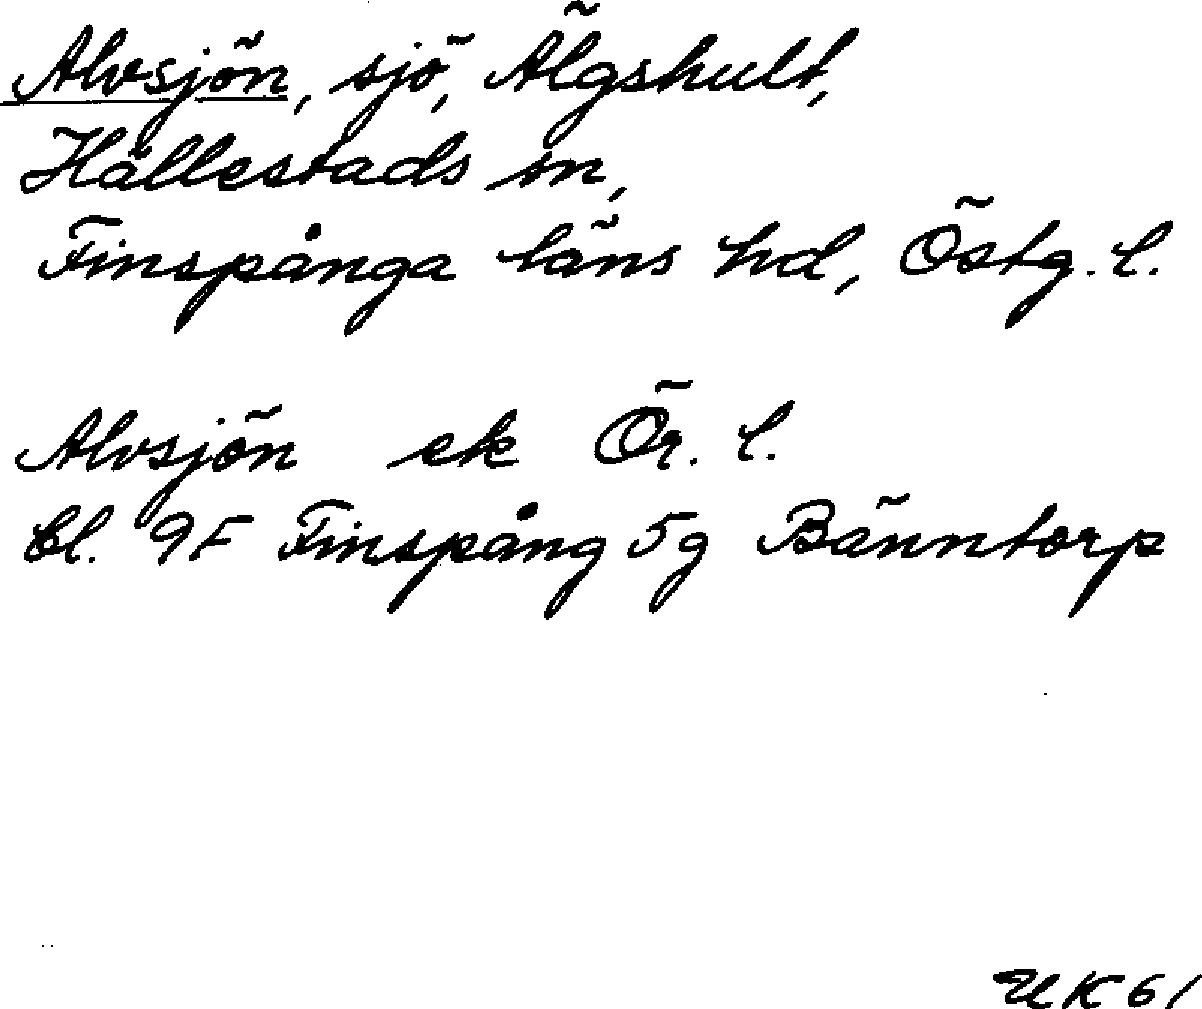 Alvsjön, sjö, Älgshult,
Hällestads sn,
Finspånga läns hd, Östg. l.
Alvsjön ek Ör. l.
bl. 9F Finspång 5g Bänntorp
UK 61